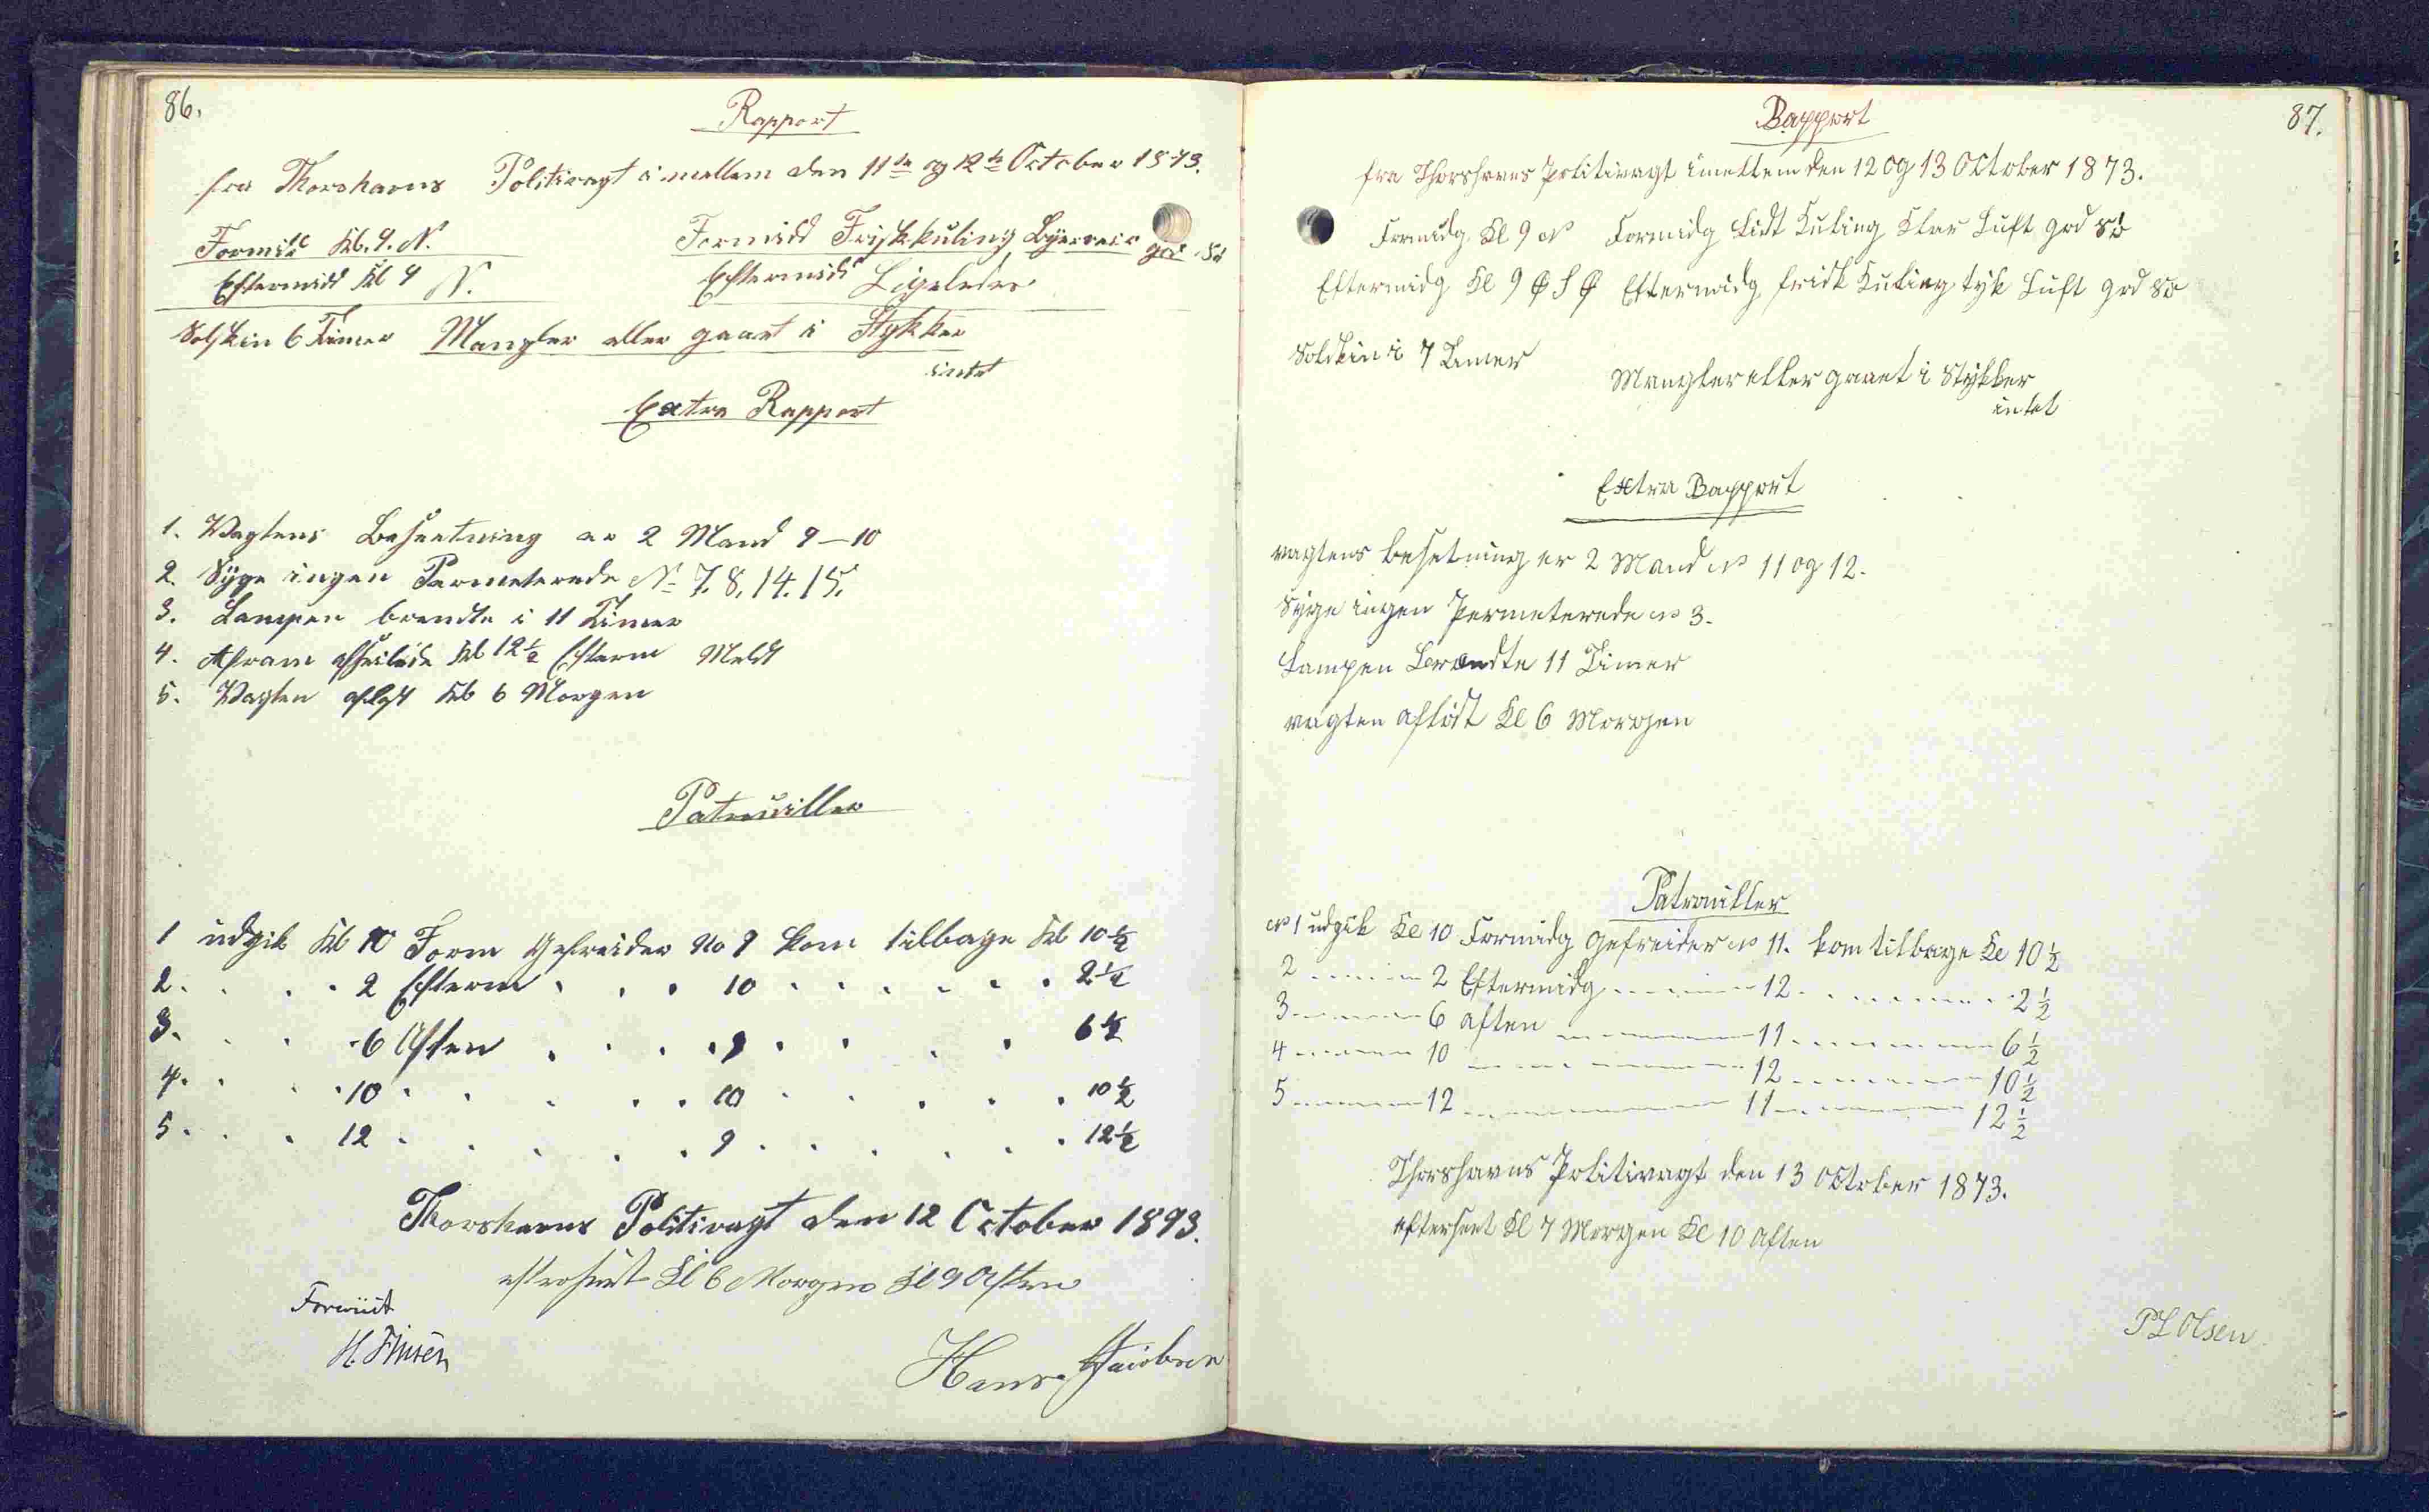 86.
Rapport
fra Thorshavns Politivagt imellem den 11te og 12te October 1873.
Formidd Kl. 9. N. Formidd Frisk kuling Byeveir god Sø
Eftermidd Kl 9 N. Eftermidd Ligeledes
Solskin 6 Timer Mangler eller gaaet i Stykker
intet
Extra Rapport
1. Vagtens Besætning er 2 Mand 9-10
2. Syge ingen Permeterede No 7. 8. 14. 15.
3. Lampen brendte i 11 Timer
4. afseilede Kl 12½ Efterm
5. Vagten afløst Kl 6 Morgen
Patrouiller
1 udgik Kl 10 Form Gefreider No 9 kom tilbage Kl 10½
2. . . . 2 Efterm . . . 10 . . . . . . 2½
3. . . . 6 Aften . . . . 9 . . . . 6½
4. . . . 10 . . . . . 10 . . . . . 10½
5. . . . 12 . . . . . 9 . . . . . . 12½
Thorshavns Politivagt den 12 October 1873.
efterseet Kl 6 Morgen Kl 9 Aften
Foreviist
H. Finsen
Hans Jacobsen
87.
Rapport
fra Thorshavns Politivagt imellem den 12 og 13 October 1873.
Formidg. Kl 9 N Formidg Lidt Kuling Klar Luft god Sø
Eftermidg Kl 9 Ø S Ø Eftermidg frisk Kuling tyk Luft god Sø
Solskin i 7 Timer
Mangler eller gaaet i Stykker
intet
Extra Rapport
vagtens besetning er 2 Mand No 11 og 12.
Syge ingen Permeterede No 3.
Lampen Brændte 11 Timer
vagten afløst Kl 6 Morgen
Patrouiller
No 1 udgik Kl 10 Formidg Gefreider No 11. kom tilbage Kl 10½
2 ------ 2 Eftermidg ------ 12 ------ 2½
3 ------ 6 aften ------ 11 ------ 6½
4 ------ 10 ------ 12 ------ 10½
5 ------ 12 ------ 11 ------ 12½
Thorshavns Politivagt den 13 October 1873.
efterseet Kl 7 Morgen Kl 10 Aften
PL Olsen